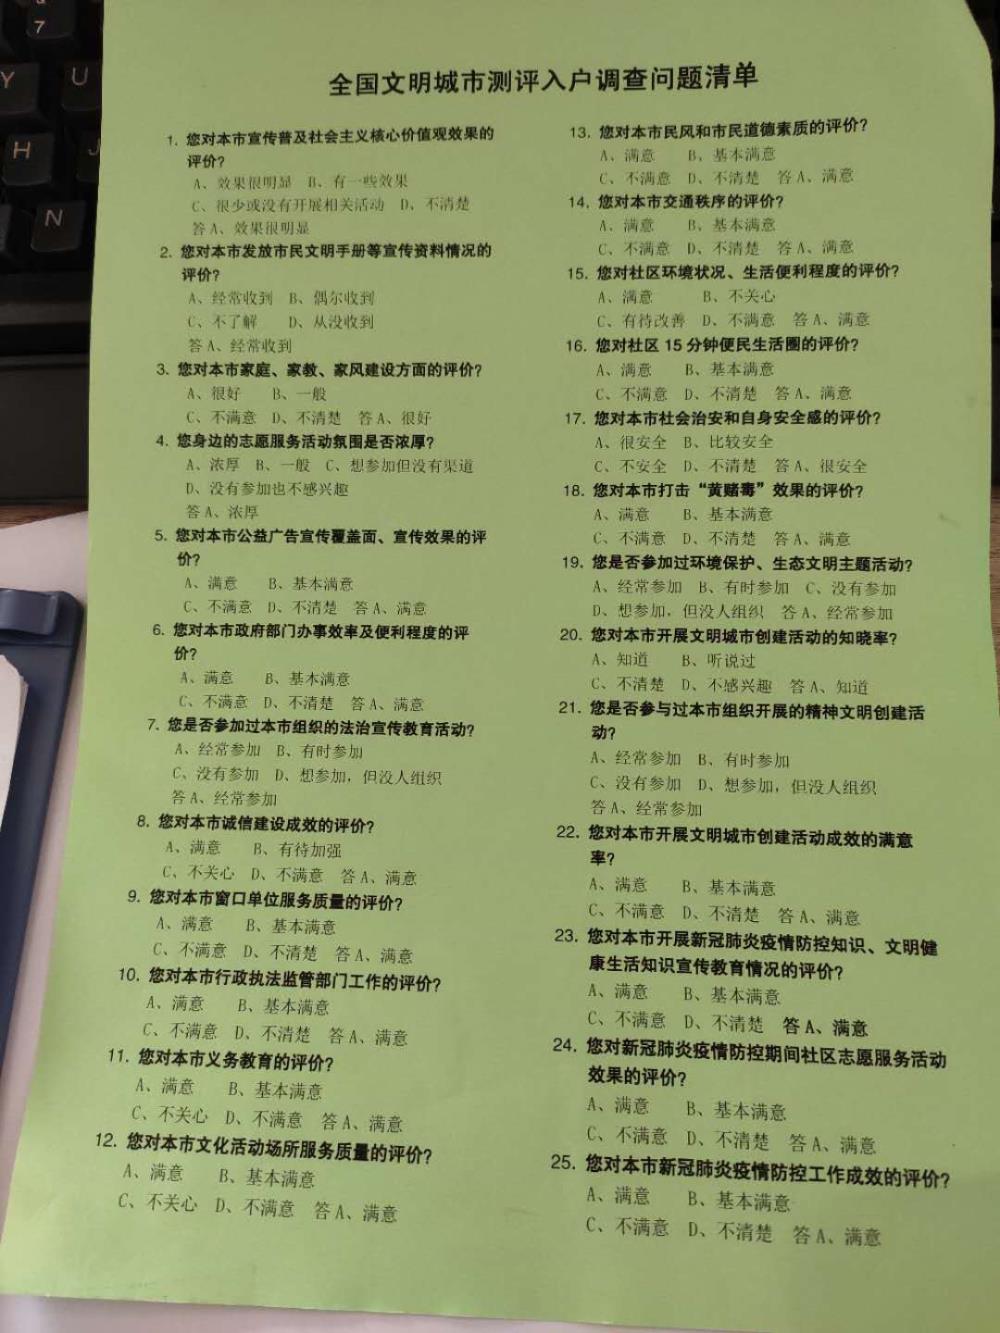 7
Y
U
H
J
N
全国文明城市测评入户调查问题清单
1. 您对本市宣传普及社会主义核心价值观效果的
评价?
A、效果很明显 B、有一些效果
C、很少或没有开展相关活动 D、不清楚
答 A、效果很明显
2. 您对本市发放市民文明手册等宣传资料情况的
评价?
A、经常收到 B、偶尔收到
C、不了解 D、从没收到
答 A、经常收到
3. 您对本市家庭、家教、家风建设方面的评价?
A、很好 B、一般
C、不满意 D、不清楚 答 A、很好
4. 您身边的志愿服务活动氛围是否浓厚?
A、浓厚 B、一般 C、想参加但没有渠道
D、没有参加也不感兴趣
答 A、浓厚
5. 您对本市公益广告宣传覆盖面、宣传效果的评
价?
A、满意 B、基本满意
C、不满意 D、不清楚 答 A、满意
6. 您对本市政府部门办事效率及便利程度的评
价?
A、满意 B、基本满意
C、不满意 D、不清楚 答 A、满意
7. 您是否参加过本市组织的法治宣传教育活动?
A、经常参加 B、有时参加
C、没有参加 D、想参加，但没人组织
答 A、经常参加
8. 您对本市诚信建设成效的评价?
A、满意 B、有待加强
C、不关心 D、不满意 答 A、满意
9. 您对本市窗口单位服务质量的评价?
A、满意 B、基本满意
C、不满意 D、不清楚 答 A、满意
10. 您对本市行政执法监管部门工作的评价?
A、满意 B、基本满意
C、不满意 D、不清楚 答 A、满意
11. 您对本市义务教育的评价?
A、满意 B、基本满意
C、不关心 D、不满意 答 A、满意
12. 您对本市文化活动场所服务质量的评价?
A、满意 B、基本满意
C、不关心 D、不满意 答 A、满意
13. 您对本市民风和市民道德素质的评价?
A、满意 B、基本满意
C、不满意 D、不清楚 答 A、满意
14. 您对本市交通秩序的评价?
A、满意 B、基本满意
C、不满意 D、不清楚 答 A、满意
15. 您对社区环境状况、生活便利程度的评价?
A、满意 B、不关心
C、有待改善 D、不满意 答 A、满意
16. 您对社区 15 分钟便民生活圈的评价?
A、满意 B、基本满意
C、不满意 D、不清楚 答 A、满意
17. 您对本市社会治安和自身安全感的评价?
A、很安全 B、比较安全
C、不安全 D、不清楚 答 A、很安全
18. 您对本市打击“黄赌毒”效果的评价?
A、满意 B、基本满意
C、不满意 D、不清楚 答 A、满意
19. 您是否参加过环境保护、生态文明主题活动?
A、经常参加 B、有时参加 C、没有参加
D、想参加，但没人组织 答 A、经常参加
20. 您对本市开展文明城市创建活动的知晓率?
A、知道 B、听说过
C、不清楚 D、不感兴趣 答 A、知道
21. 您是否参与过本市组织开展的精神文明创建活
动?
A、经常参加 B、有时参加
C、没有参加 D、想参加，但没人组织
答 A、经常参加
22. 您对本市开展文明城市创建活动成效的满意
率?
A、满意 B、基本满意
C、不满意 D、不清楚 答 A、满意
23. 您对本市开展新冠肺炎疫情防控知识、文明健
康生活知识宣传教育情况的评价?
A、满意 B、基本满意
C、不满意 D、不清楚 答 A、满意
24. 您对新冠肺炎疫情防控期间社区志愿服务活动
效果的评价?
A、满意 B、基本满意
C、不满意 D、不清楚 答 A、满意
25. 您对本市新冠肺炎疫情防控工作成效的评价?
A、满意 B、基本满意
C、不满意 D、不清楚 答 A、满意